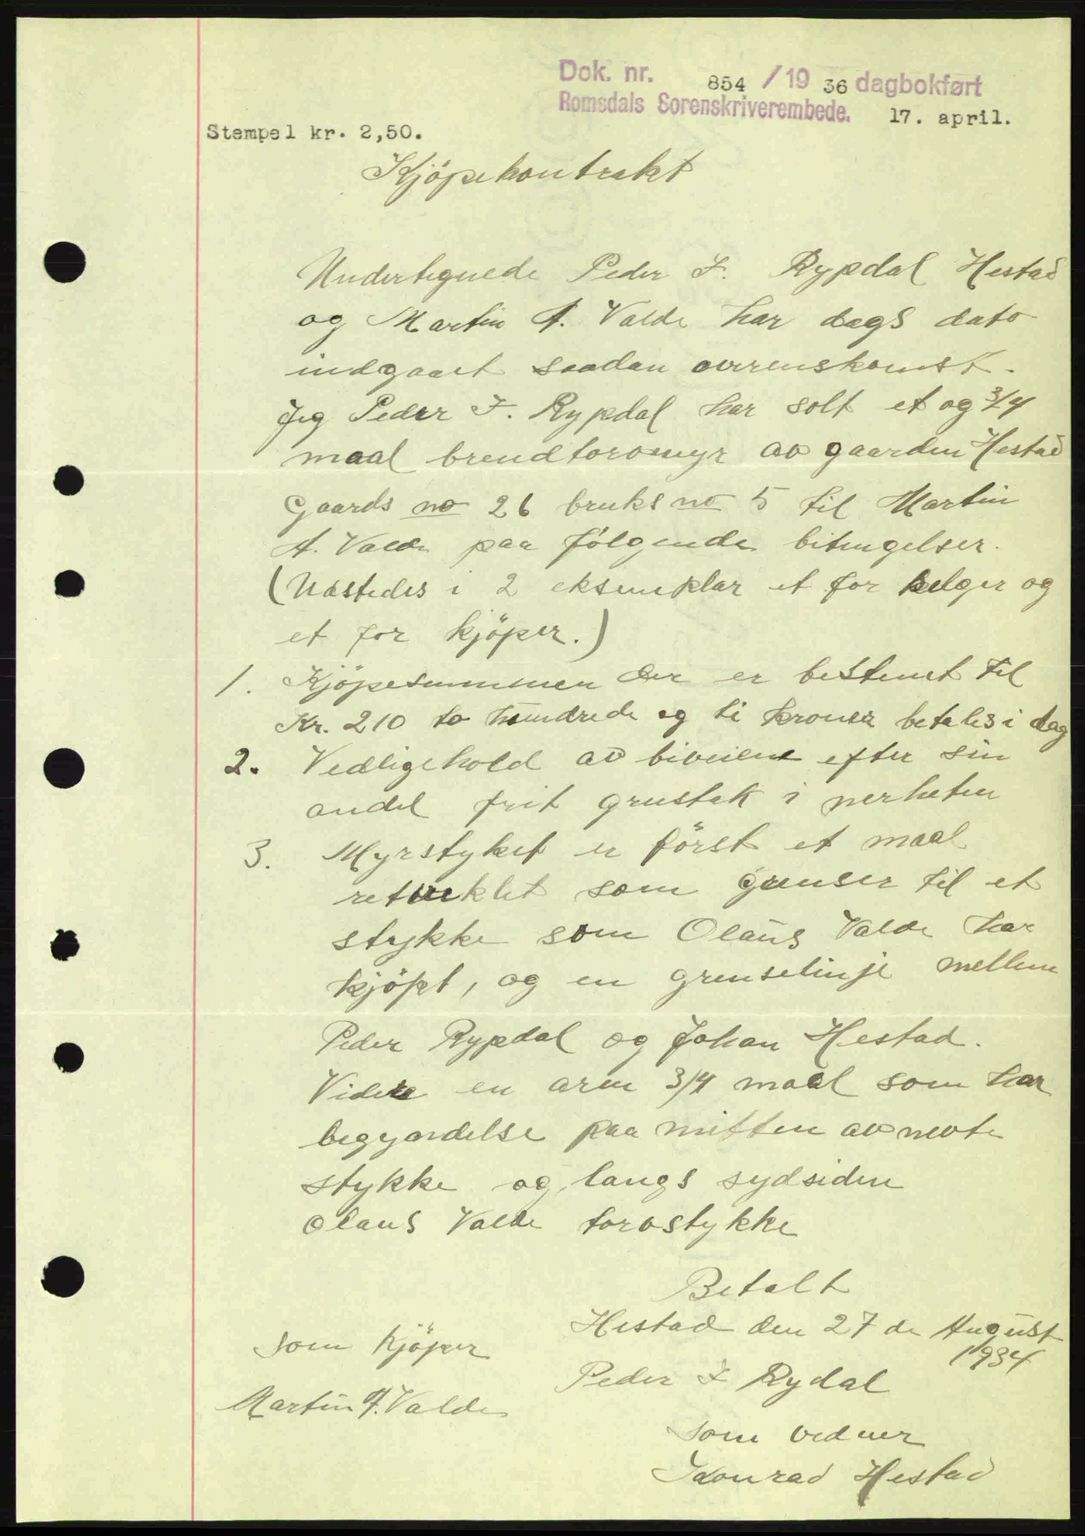 Dok. nr. 854 / 19 36 dagbokført
Romsdals Sorenskriverembede. 17. april.
Stempel kr. 2,50.
Kjöpekontrakt
Undertegnede Peder I. Rypdal Hestad
og Martin A. Valde har dags dato
indgaaet saadan overenskomst.
Jeg Peder I. Rypdal har solt et og 3/4
maal brendtorvmyr av gaarden Hestad
Gaards no 26 bruks no 5 til Martin
A. Valde paa følgende bitingelser.
(Utstedes i 2 eksemplar et for selger og
et for kjöper.)
1. Kjöpesummen der er bestemt til
Kr. 210 to hundrede og ti kroner betales i dag
2. Vedligehold av biveiene efter sin
andel frit grustak i nerheten
3. Myrstyket er först et maal
retvinklet som grenser til et
stykke som Olaus Valde har
kjöpt, og en grenselinje mellem
Peder Rypdal og Johan Hestad.
Videre en arm 3/4 maal som har
begyndelse paa mitten av nevte
stykke og langs sydsiden
Olaus Valde torvstykke
Betalt
Hestad den 27 de August
1934
som kjöper
Peder I Rydal
Martin A. Valde
som vedner
Konrad Hestad